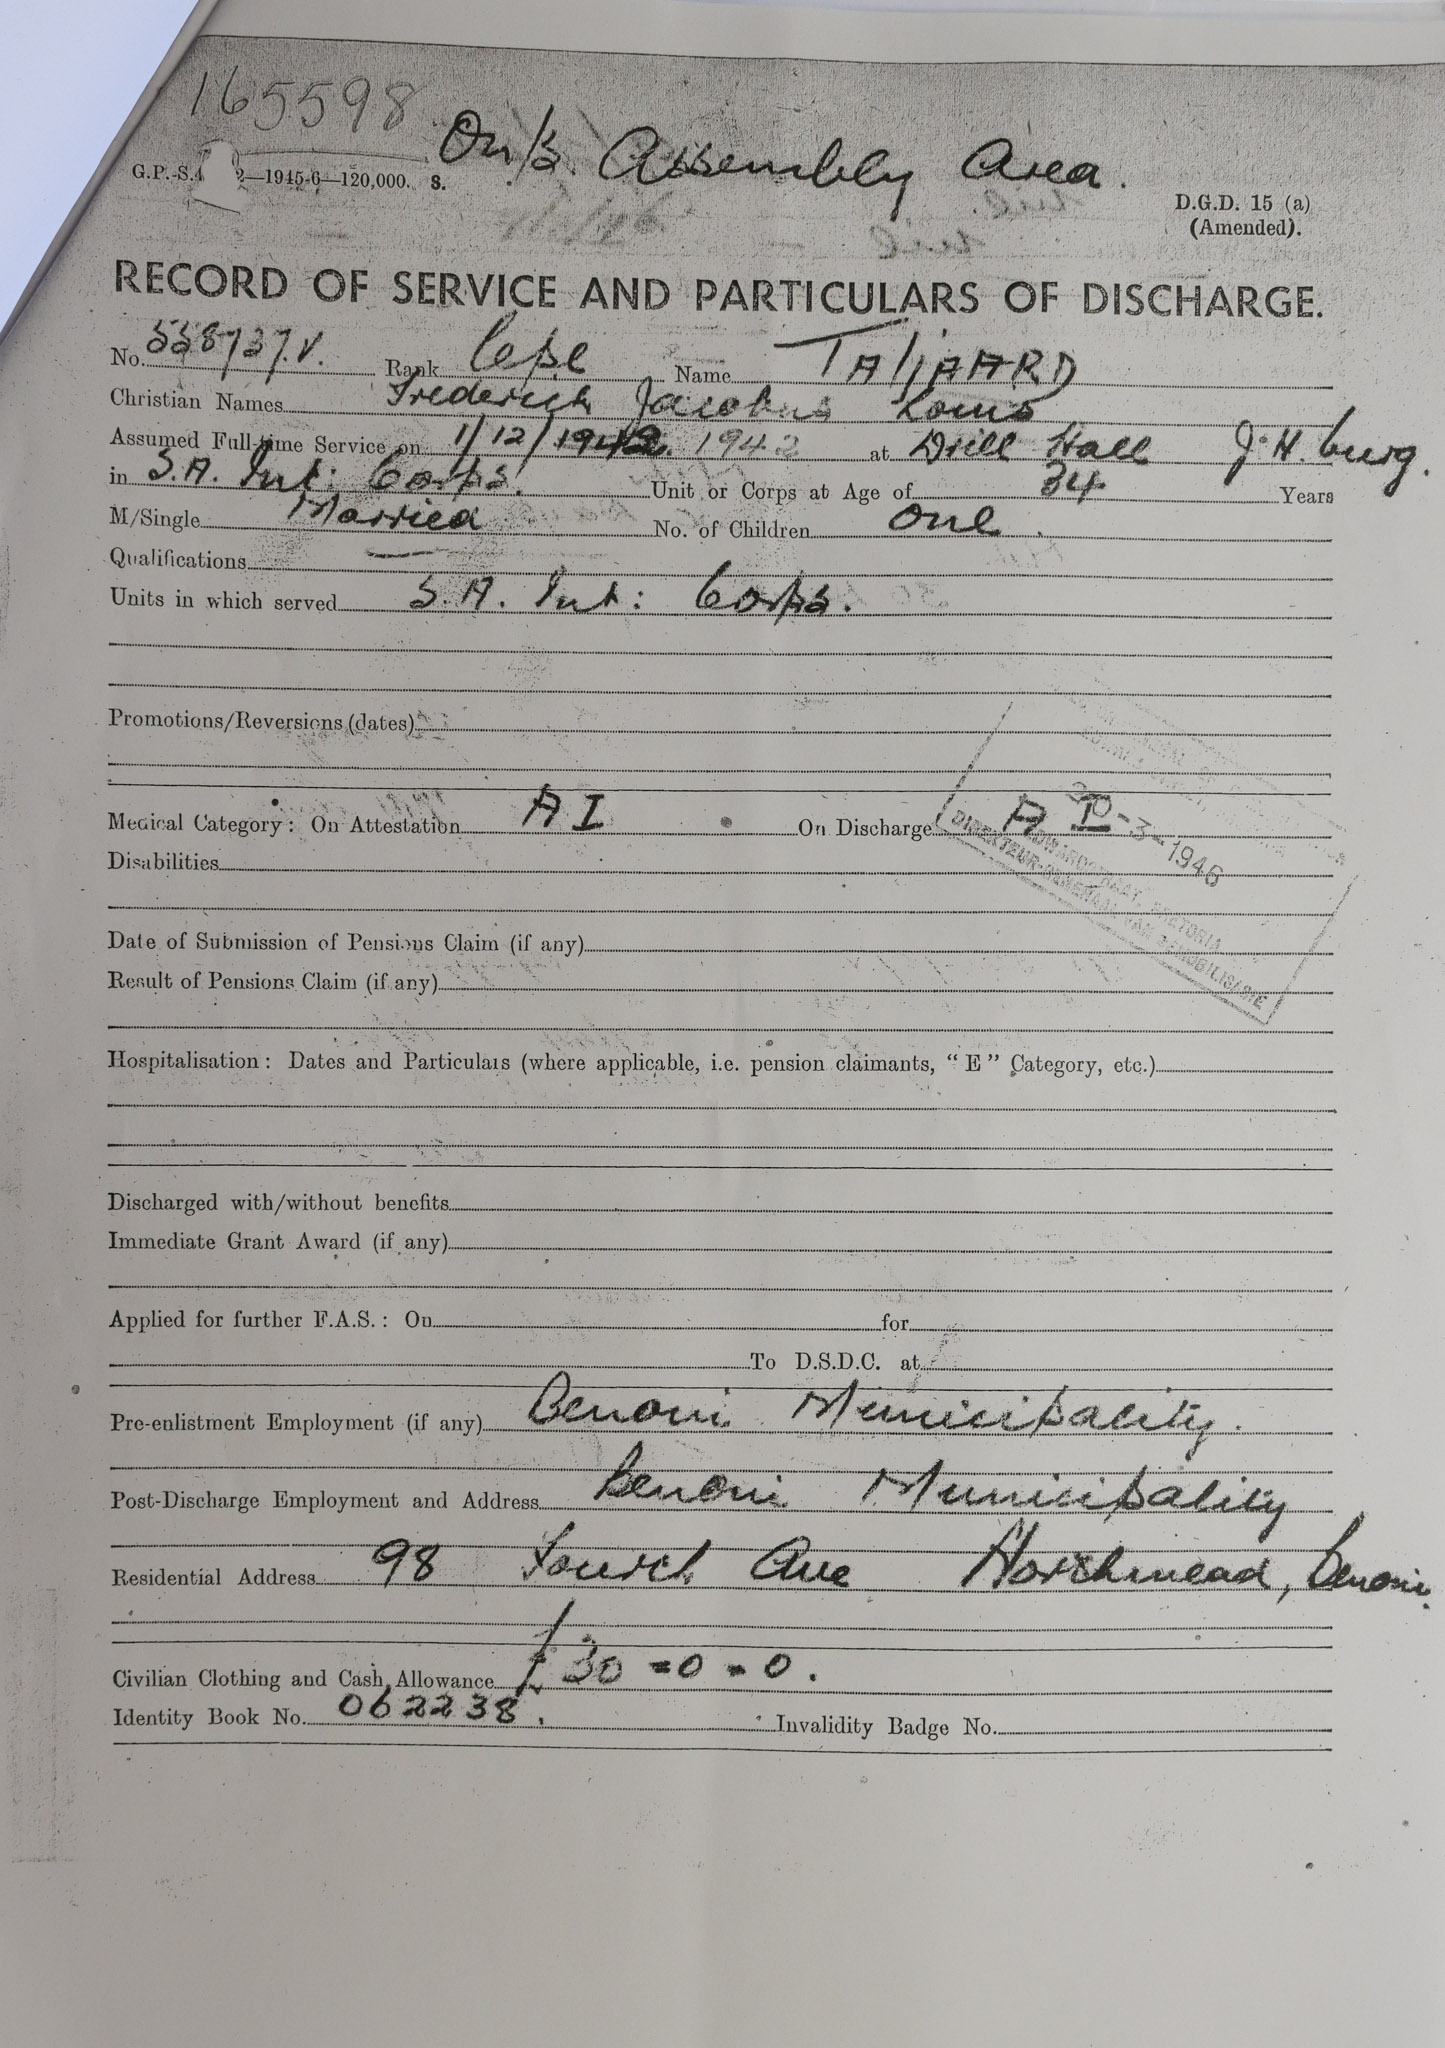 165598
On/s. Assembly Area.
G.P.-S. 2—1945-6—120,000. S.
D.G.D. 15 (a)
(Amended).
RECORD OF SERVICE AND PARTICULARS OF DISCHARGE.
No. 558737.V. Rank Cpl Name TALJAARD
Christian Names Frederick Jacobus Louis
Assumed Full-time Service on 1/12/1942 1942 at Drill Hall J.H.burg.
in S.A. Int: Corps. Unit or Corps at Age of 34 Years
M/Single Married No. of Children one.
Qualifications —
Units in which served S.A. Int: Corps.
Promotions/Reversions (dates)
Medical Category: On Attestation A I On Discharge A I
30-3-1946
EDWARDSTRAAT, PRETORIA
DIREKTEUR-GENERAAL VAN DEMOBILISASIE
Disabilities
Date of Submission of Pensions Claim (if any)
Result of Pensions Claim (if any)
Hospitalisation: Dates and Particulars (where applicable, i.e. pension claimants, "E" Category, etc.)
Discharged with/without benefits
Immediate Grant Award (if any)
Applied for further F.A.S.: On for
To D.S.D.C. at
Pre-enlistment Employment (if any) Benoni Municipality.
Post-Discharge Employment and Address Benoni Municipality
Residential Address 98 Fourth Ave Northmead, Benoni.
Civilian Clothing and Cash Allowance £30=0=0.
Identity Book No. 062238. Invalidity Badge No.